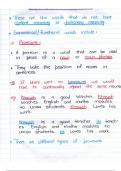 These are the words that do not have
content meaning or dictionary meaning
Grammatical/functional words include:
① Pronouns:
A pronoun is a word that can be used
in place of a noun or noun phrase
They take the position of nouns in
sentences
If there were no pronouns we would
have to continually repeat the same nouns
is a good teacher.
teaches English and maths modules
loves his
work
is a good teacher. He teach-
es English and maths modules to
students. He loves his work.
There are different types of pronouns